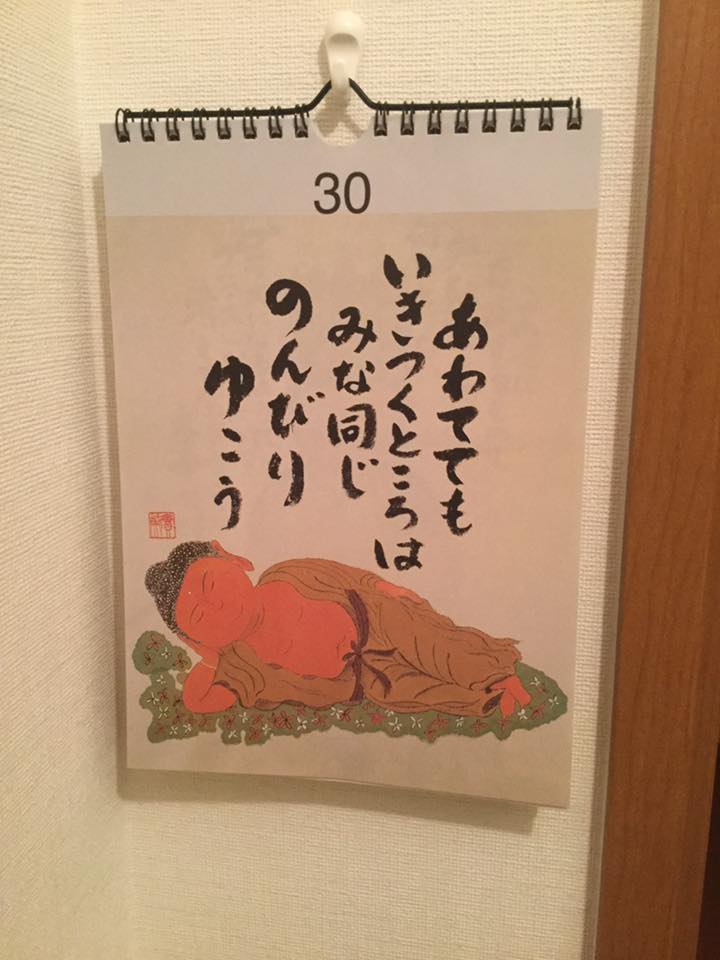 30
あわてても
いきつくところは
みな同じ
のんびり
ゆこう